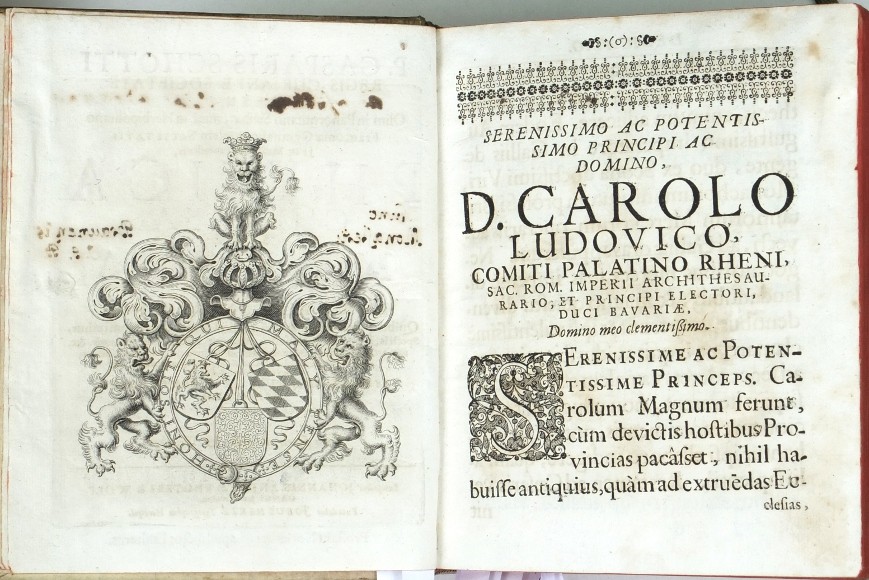 HONI SOIT QUI MAL Y PENSE
:(o):
SERENISSIMO AC POTENTIS-
SIMO PRINCIPI AC
DOMINO,
D. CAROLO
LUDOVICO,
COMITI PALATINO RHENI,
SAC. ROM. IMPERII ARCHITHESAU-
RARIO, ET PRINCIPI ELECTORI,
DUCI BAVARIÆ,
Domino meo clementissimo.
SERENISSIME AC POTEN-
TISSIME PRINCEPS. Ca-
rolum Magnum ferunt,
cùm devictis hostibus Pro-
vincias pacâsset, nihil ha-
buisse antiquius, quàm ad extruēdas Ec-
clesias,